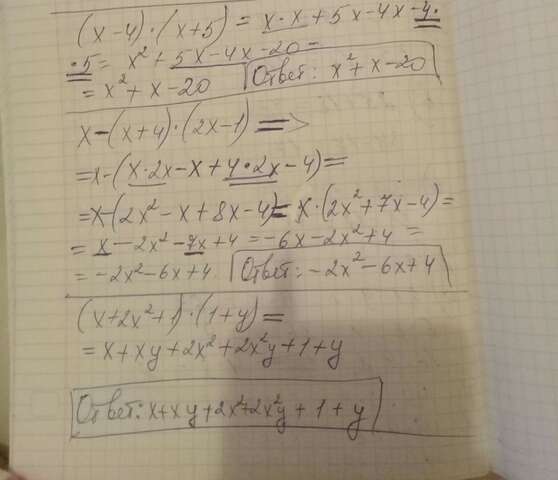 (x-4)·(x+5) = x·x+5x-4x-4·
·5= x²+5x-4x-20=
= x²+x-20 Ответ: x²+x-20
x-(x+4)·(2x-1) =>
=x-(x·2x-x+4·2x-4)=
=x-(2x²-x+8x-4)= x·(2x²+7x-4)=
= x-2x²-7x+4 = -6x-2x²+4 =
= -2x²-6x+4 Ответ: -2x²-6x+4
(x+2x²+1)·(1+y)=
= x+xy+2x²+2x²y+1+y
Ответ: x+xy+2x²+2x²y+1+y